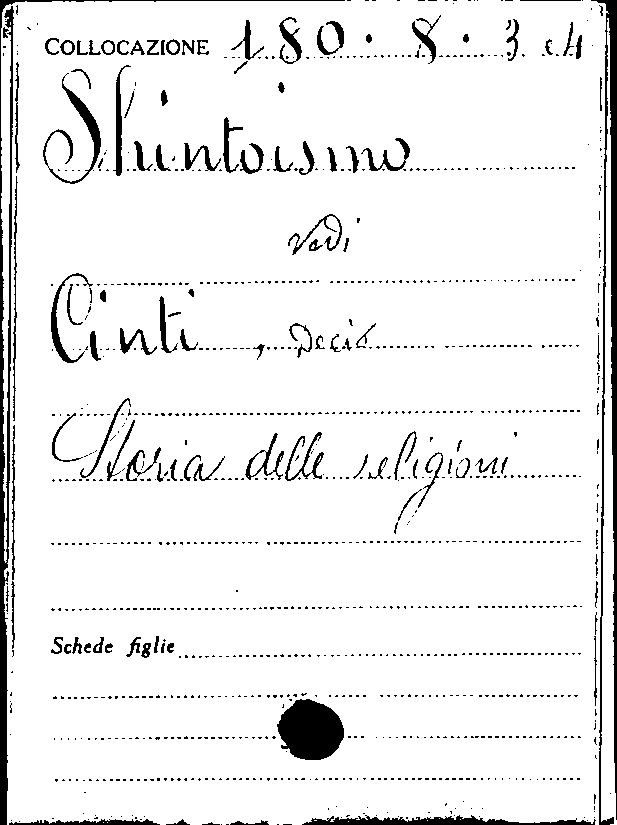 COLLOCAZIONE 180 · 8 · 3 e 4
Shintoismo
Vedi
Cinti, Decio
Storia delle religioni
Schede figlie